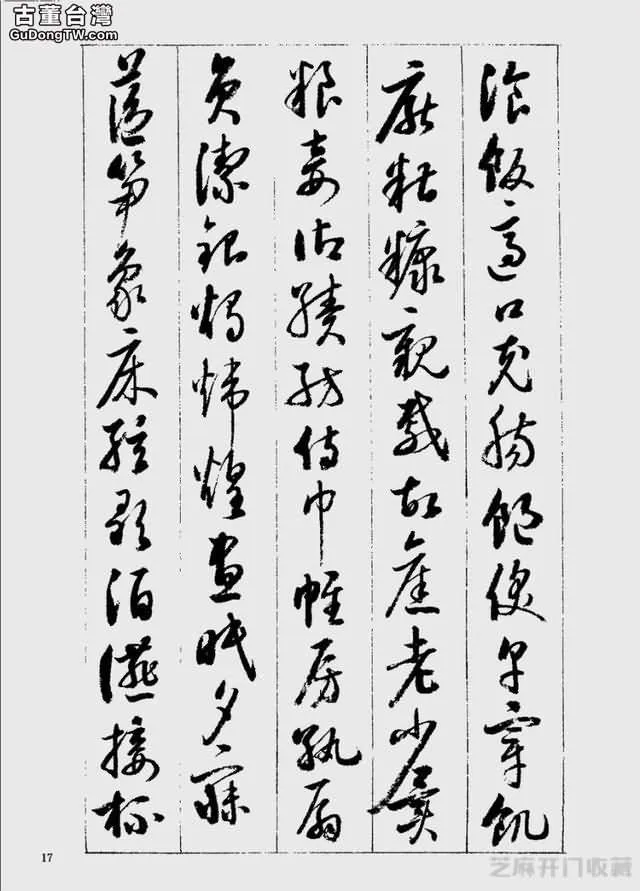 古董台灣
GuDongTW.com
湌飯適口充腸飽飫烹宰飢
厭糟糠親戚故舊老少異
粮妾御績紡侍巾帷房紈扇
員潔銀燭煒煌晝眠夕寐
藍笋象床絃歌酒讌接杯
17
芝麻开门收藏